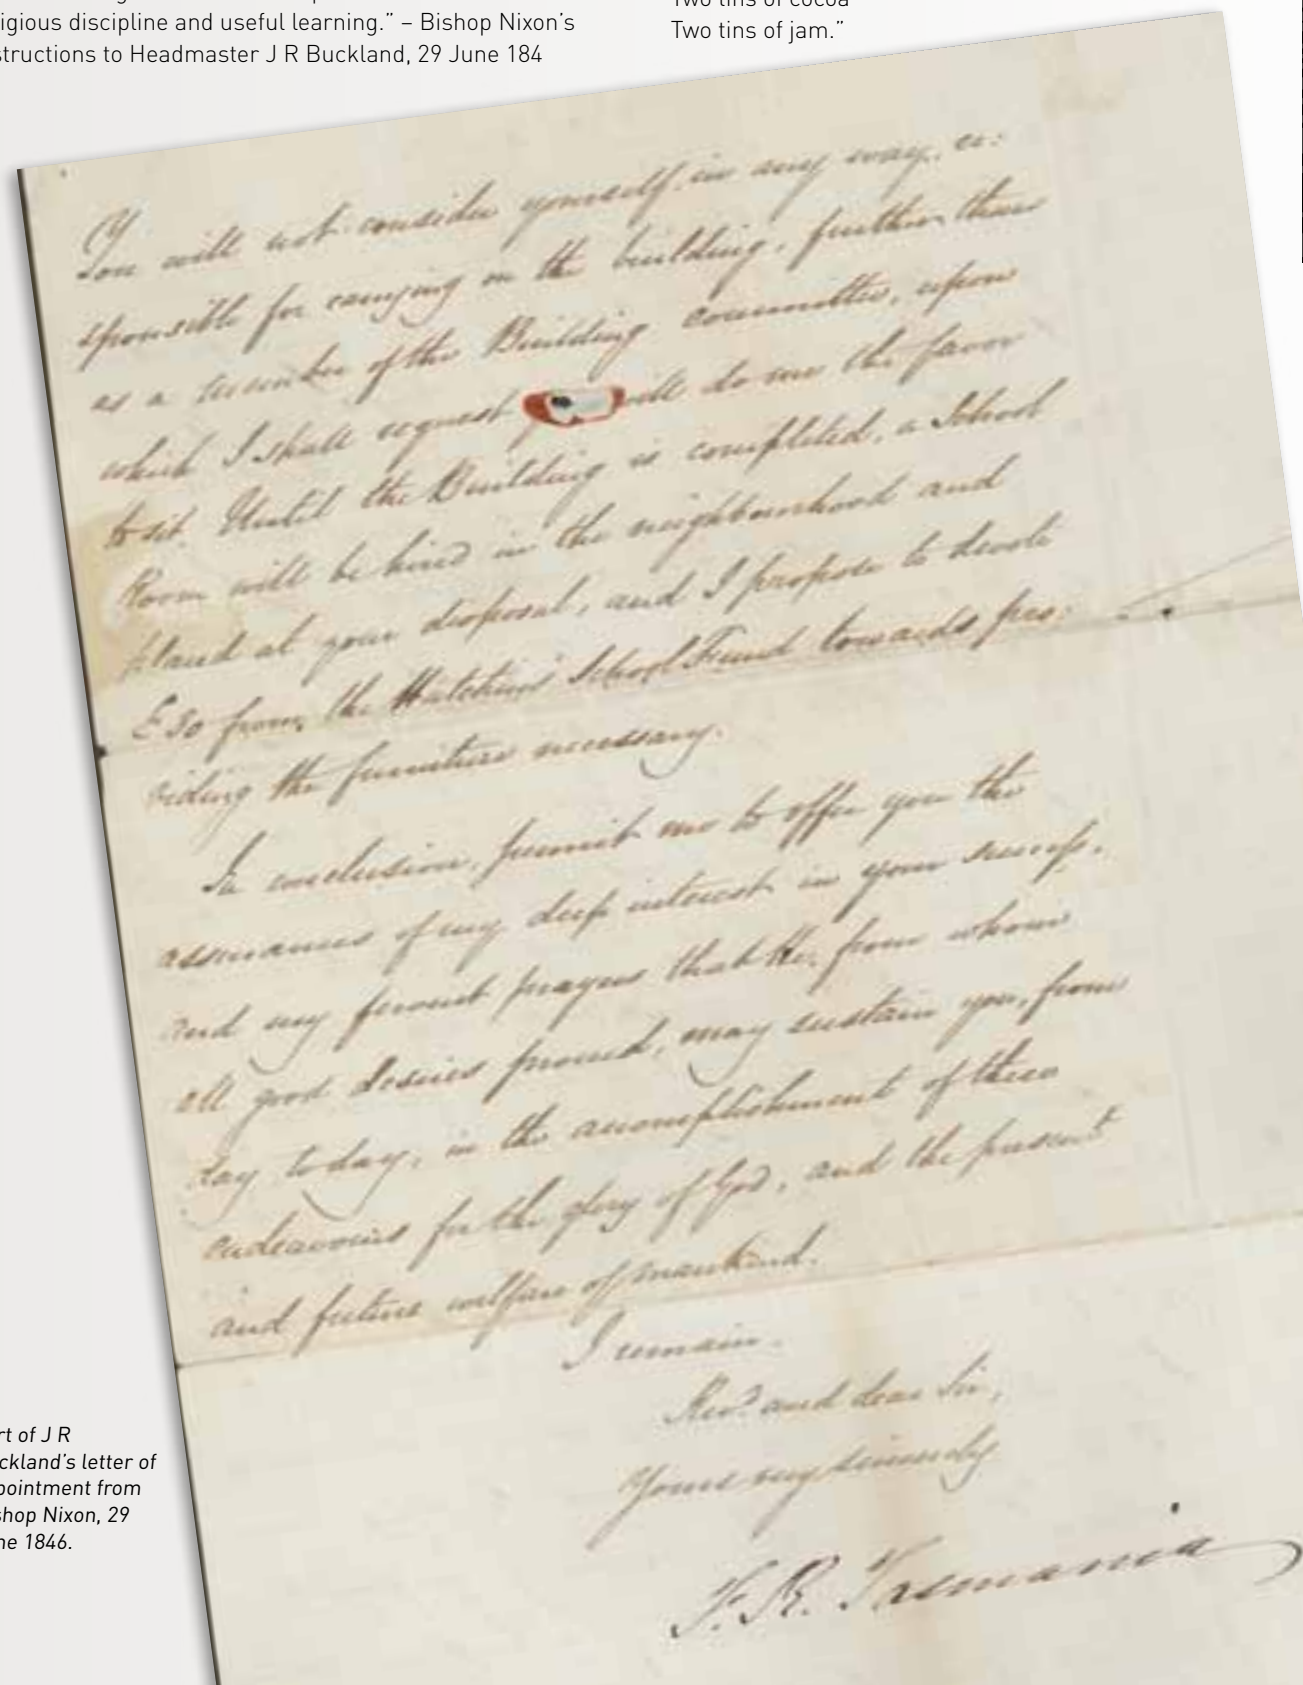 igious discipline and useful learning.” – Bishop Nixon’s
structions to Headmaster J R Buckland, 29 June 184
Two tins of cocoa
Two tins of jam.”
You will not consider yourself, in any way, re:
sponsible for carrying on the building, further than
as a member of the Building committee, upon
which I shall request will do me the favor
to sit. Until the Building is completed, a School
Room will be hired in the neighbourhood and
placed at your disposal, and I propose to devote
£50 from the Hutchins' School Fund towards pro:
viding the furniture necessary.
In conclusion, permit me to offer you the
assurances of my deep interest in your success,
and my fervent prayers that He, from whom
all good desires proceed, may sustain you, from
day to day, in the accomplishment of these
endeavours for the glory of God, and the present
and future welfare of mankind.
I remain.
Revd. and dear Sir,
Yours very sincerely
F. R. Tasmania
rt of J R
ckland’s letter of
pointment from
shop Nixon, 29
ne 1846.